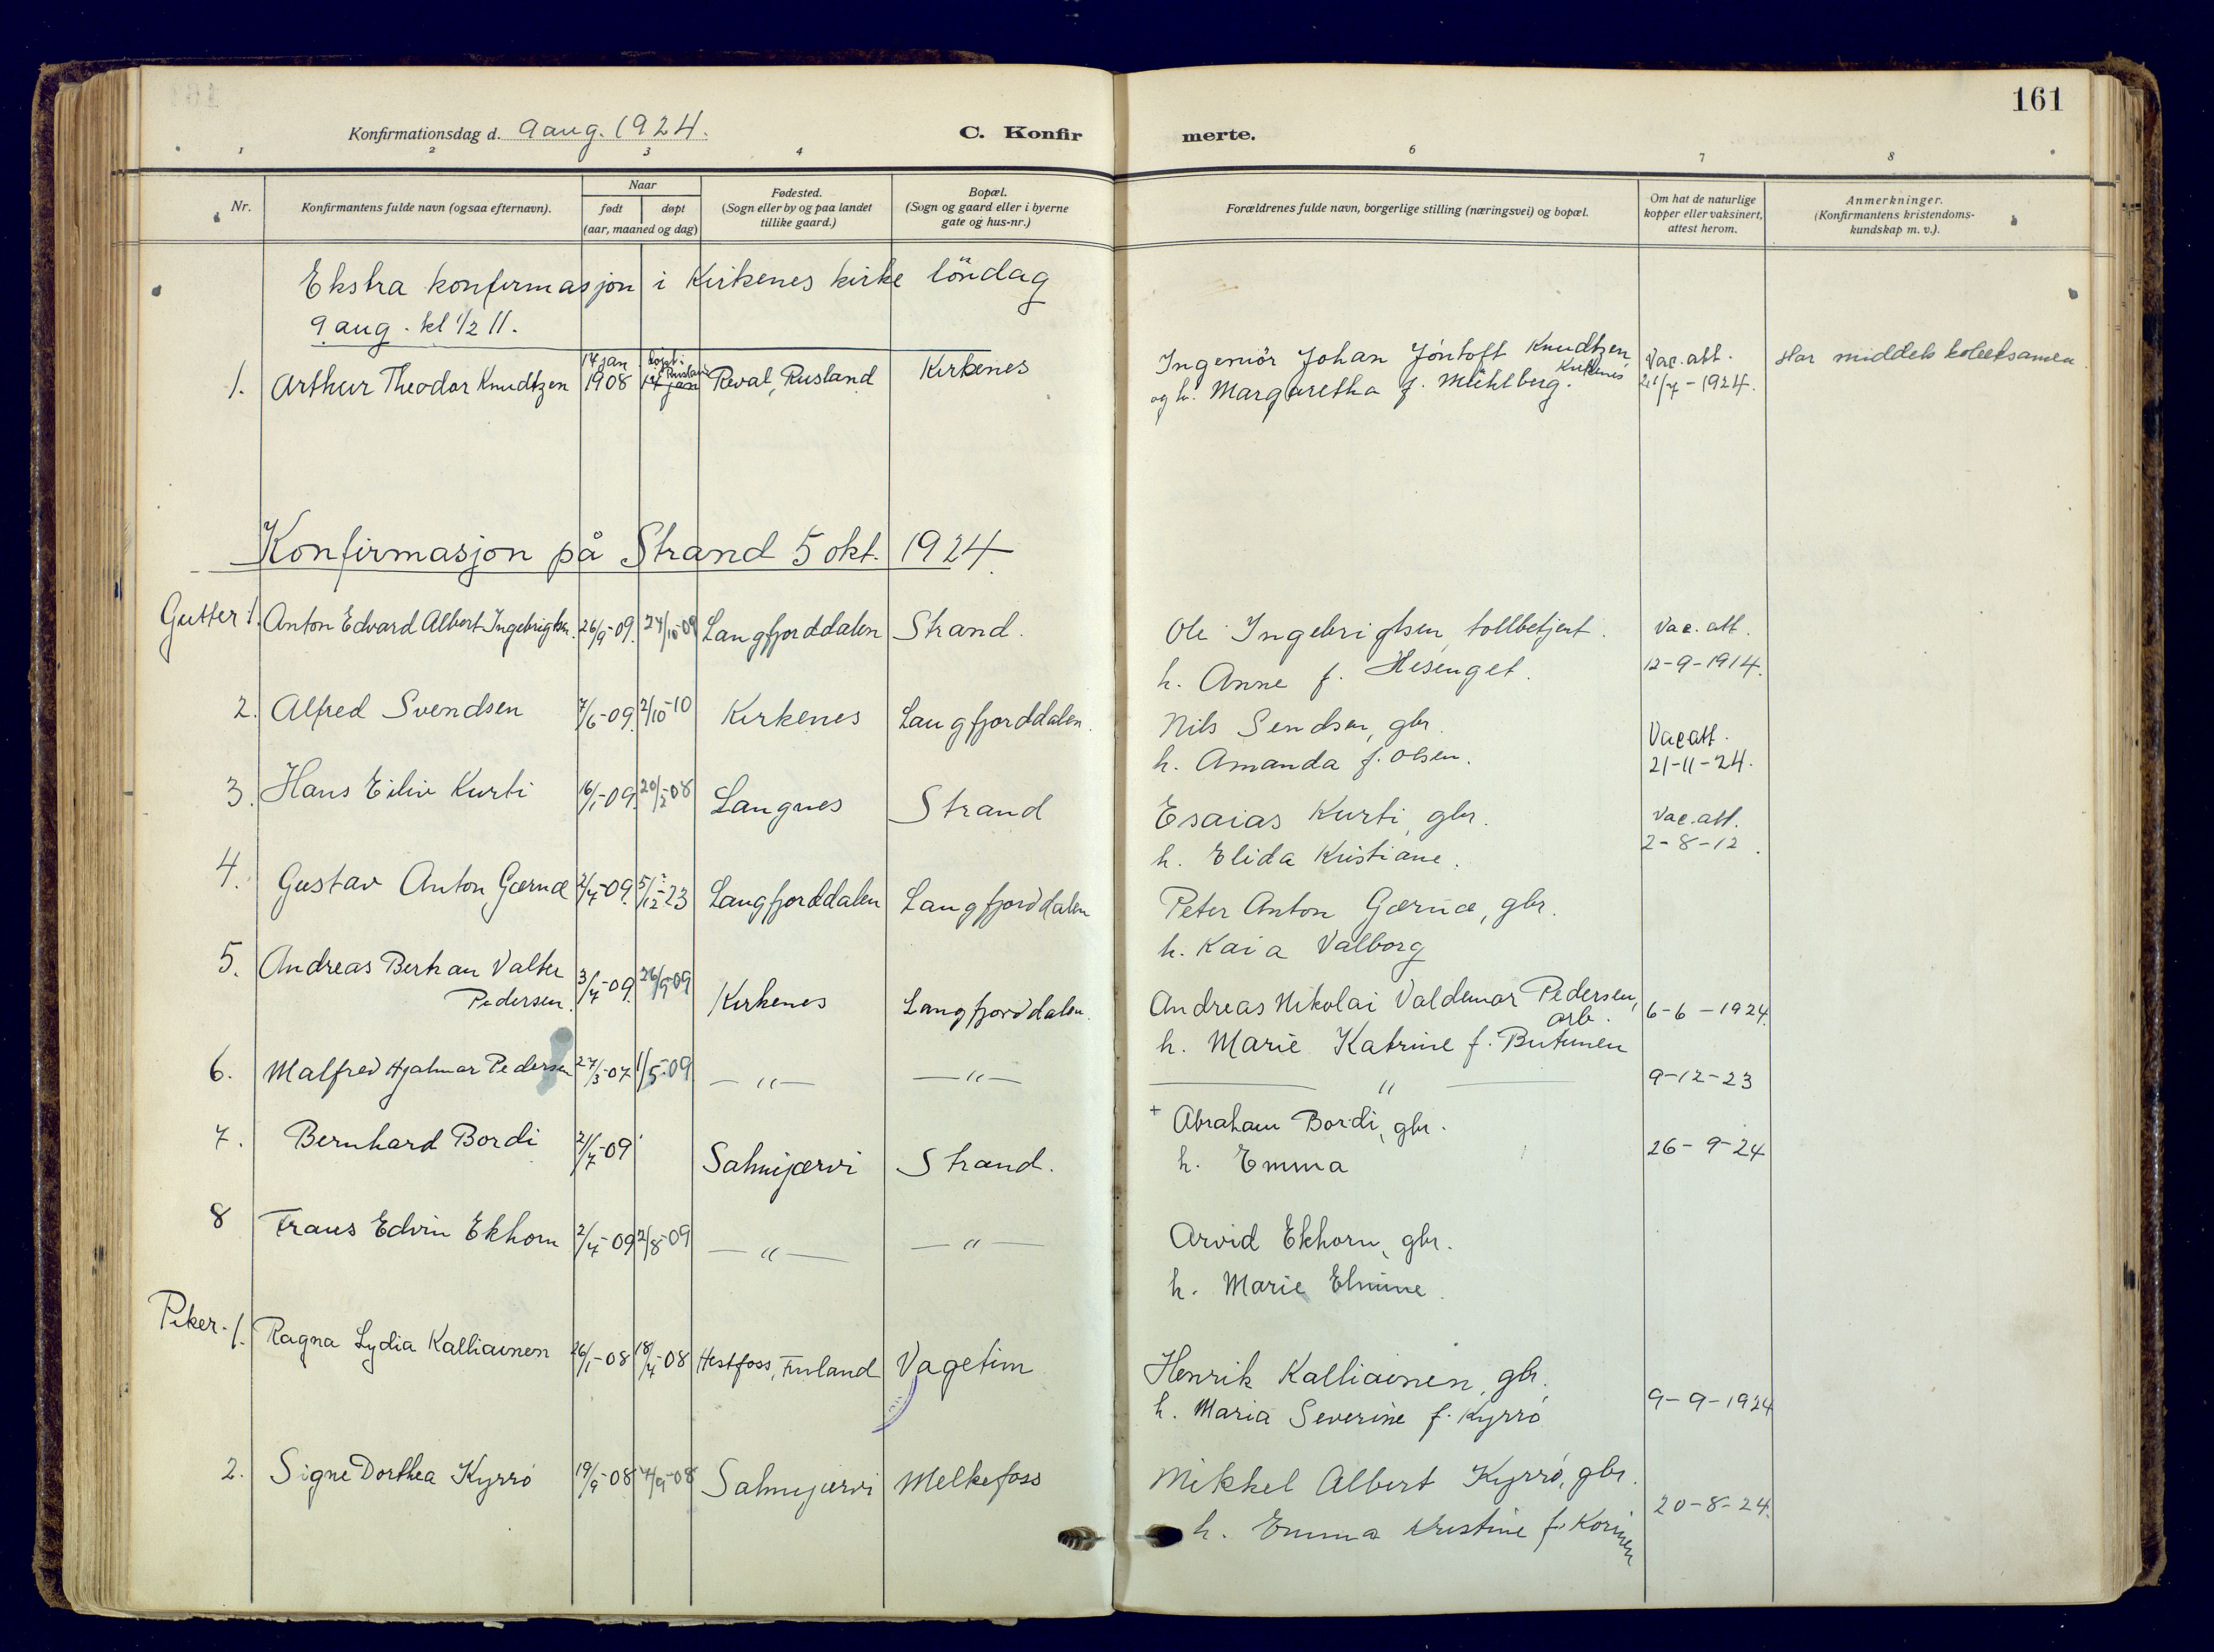 161
Konfirmationsdag d. 9 aug. 1924.
C. Konfirmerte.
1 2 3 4 6 7 8
Nr.
Konfirmantens fulde navn (ogsaa efternavn).
Naar
født døpt
(aar, maaned og dag)
Fødested.
(Sogn eller by og paa landet
tillike gaard.)
Bopæl.
(Sogn og gaard eller i byerne
gate og hus-nr.)
Forældrenes fulde navn, borgerlige stilling (næringsvei) og bopæl.
Om hat de naturlige
kopper eller vaksinert,
attest herom.
Anmerkninger.
(Konfirmantens kristendoms-
kundskap m. v.).
Ekstra konfirmasjon i Kirkenes kirke löndag
9 aug. kl 1/2 11.
1. Arthur Theodor Knudtzen 14 jan 1908 17 jan Reval, Rusland Kirkenes
Ingeniör Johan Jöntoft Knudtzen Kirkenes
og h. Margaretha f. Mühlberg.
Vac. att.
21/7-1924.
Har middels
Konfirmasjon på Strand 5 okt. 1924.
Gutter 1. Anton Edvard Albert Ingebrigtsen. 26/9-09. 24/10-09 Langfjorddalen Strand.
Ole Ingebrigtsen, tollbetjent. Vac. att.
h. Anne f. Hesenget. 12-9-1914.
2. Alfred Svendsen 7/6-09. 2/10-10 Kirkenes Langfjorddalen.
Nils Sendsen, gbr. Vac att.
h. Amanda f. Olsen. 21-11-24.
3. Hans Eiliv Kurti 16/1-09. 20/2-08 Langnes Strand
Esaias Kurti, gbr. Vac. att.
h. Elida Kristiane. 2-8-12.
4. Gustav Anton Gærnæ 2/4-09. 5/12-23 Langfjorddalen Langfjorddalen
Peter Anton Gærnæ, gbr.
h. Kaia Valborg
5. Andreas Bertran Valter
Pedersen. 3/7-09. 26/9-09 Kirkenes Langfjorddalen.
Andreas Nikolai Valdemar Pedersen, arb. 6-6-1924.
h. Marie Katrine f. Butunen
6. Malfred Hjalmar Pedersen 27/3-07 1/5-09 —"— —"—
—"— 9-12-23
7. Bernhard Bordi 2/7-09 Salmijærvi Strand.
+ Abraham Bordi, gbr.
h. Emma 26-9-24
8 Frans Edvin Ekhorn 2/4-09 2/8-09 —"— —"—
Arvid Ekhorn, gbr.
h. Marie Elmine.
Piker. 1. Ragna Lydia Kalliainen 26/1-08 18/4-08 Hestfoss, Finland Vagetim
Henrik Kalliainen, gbr.
h. Maria Severine f. Kyrrö 9-9-1924
2. Signe Dorthea Kyrrö 19/9-08 Salmijærvi Melkefoss
Mikkel Albert Kyrrö, gbr.
h. Emma Kristine f. Korinen 20-8-24.